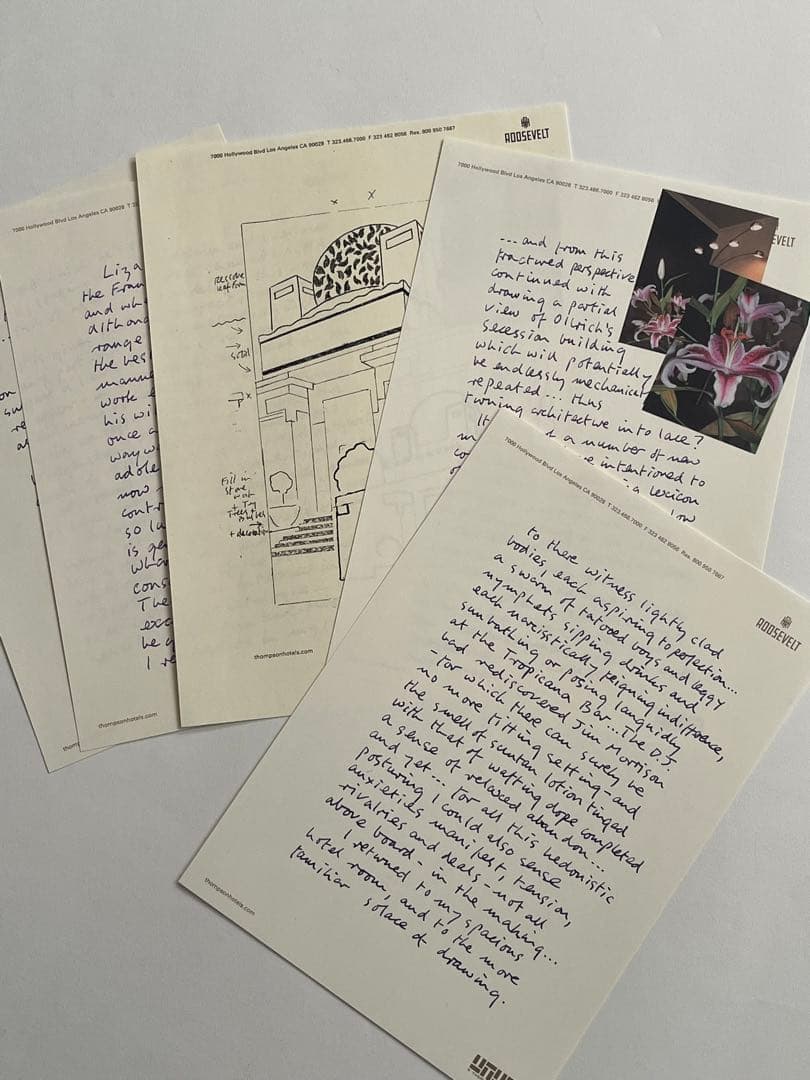 on
su
re
al
thom
7000 Hollywood Blvd Los Angeles CA 90028 T 3
Liza
the Fran
and wh
range
the bes
manne
work
his wi
once a
wayw
adole
now
contr
so la
is ge
wha
cons
The
exc
he
I re
thompsonhotels.com
7000 Hollywood Blvd Los Angeles CA 90028 T 323.466.7000 F 323 462 8056 Res. 800 950 7667
ROOSEVELT
x x
leaf form
Fill in
stone
work
+ Tiny
Trees +
+ decoration
thompsonhotels.com
7000 Hollywood Blvd Los Angeles CA 90028 T 323.466.7000 F 323 462 8056
EVELT
...and from this
fractured perspective
continued with
drawing a partial
view of Ollrich's
Secession building
which will potentially
be endlessly mechanical
repeated... thus
turning architecture into lace?
It a number of new
intentioned to
a lexicon
low
7000 Hollywood Blvd Los Angeles CA 90028 T 323.466.7000 F 323 462 8056 Res. 800 950 7667
ROOSEVELT
to there witness lightly clad
bodies, each aspiring to perfection...
a swarm of tatooed boys and leggy
nymphets sipping drinks and
each narcissistically feigning indifference,
sunbathing or posing languidly
at the Tropicana Bar... The D.J.
had rediscovered Jim Morrison
- for which there can surely be
no more fitting setting - and
the smell of suntan lotion tinged
with that of wafting dope completed
a sense of relaxed abandon...
and yet... for all this hedonistic
posturing I could also sense
anxieties manifest, tension,
rivalries and deals - not all
above board - in the making...
I returned to my spacious
hotel room, and to the more
familiar solace of drawing.
thompsonhotels.com